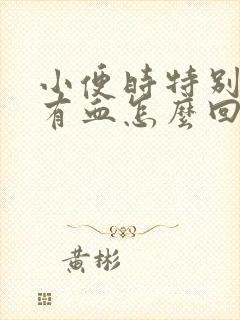 小便時特別
有血怎麼回
黃彬